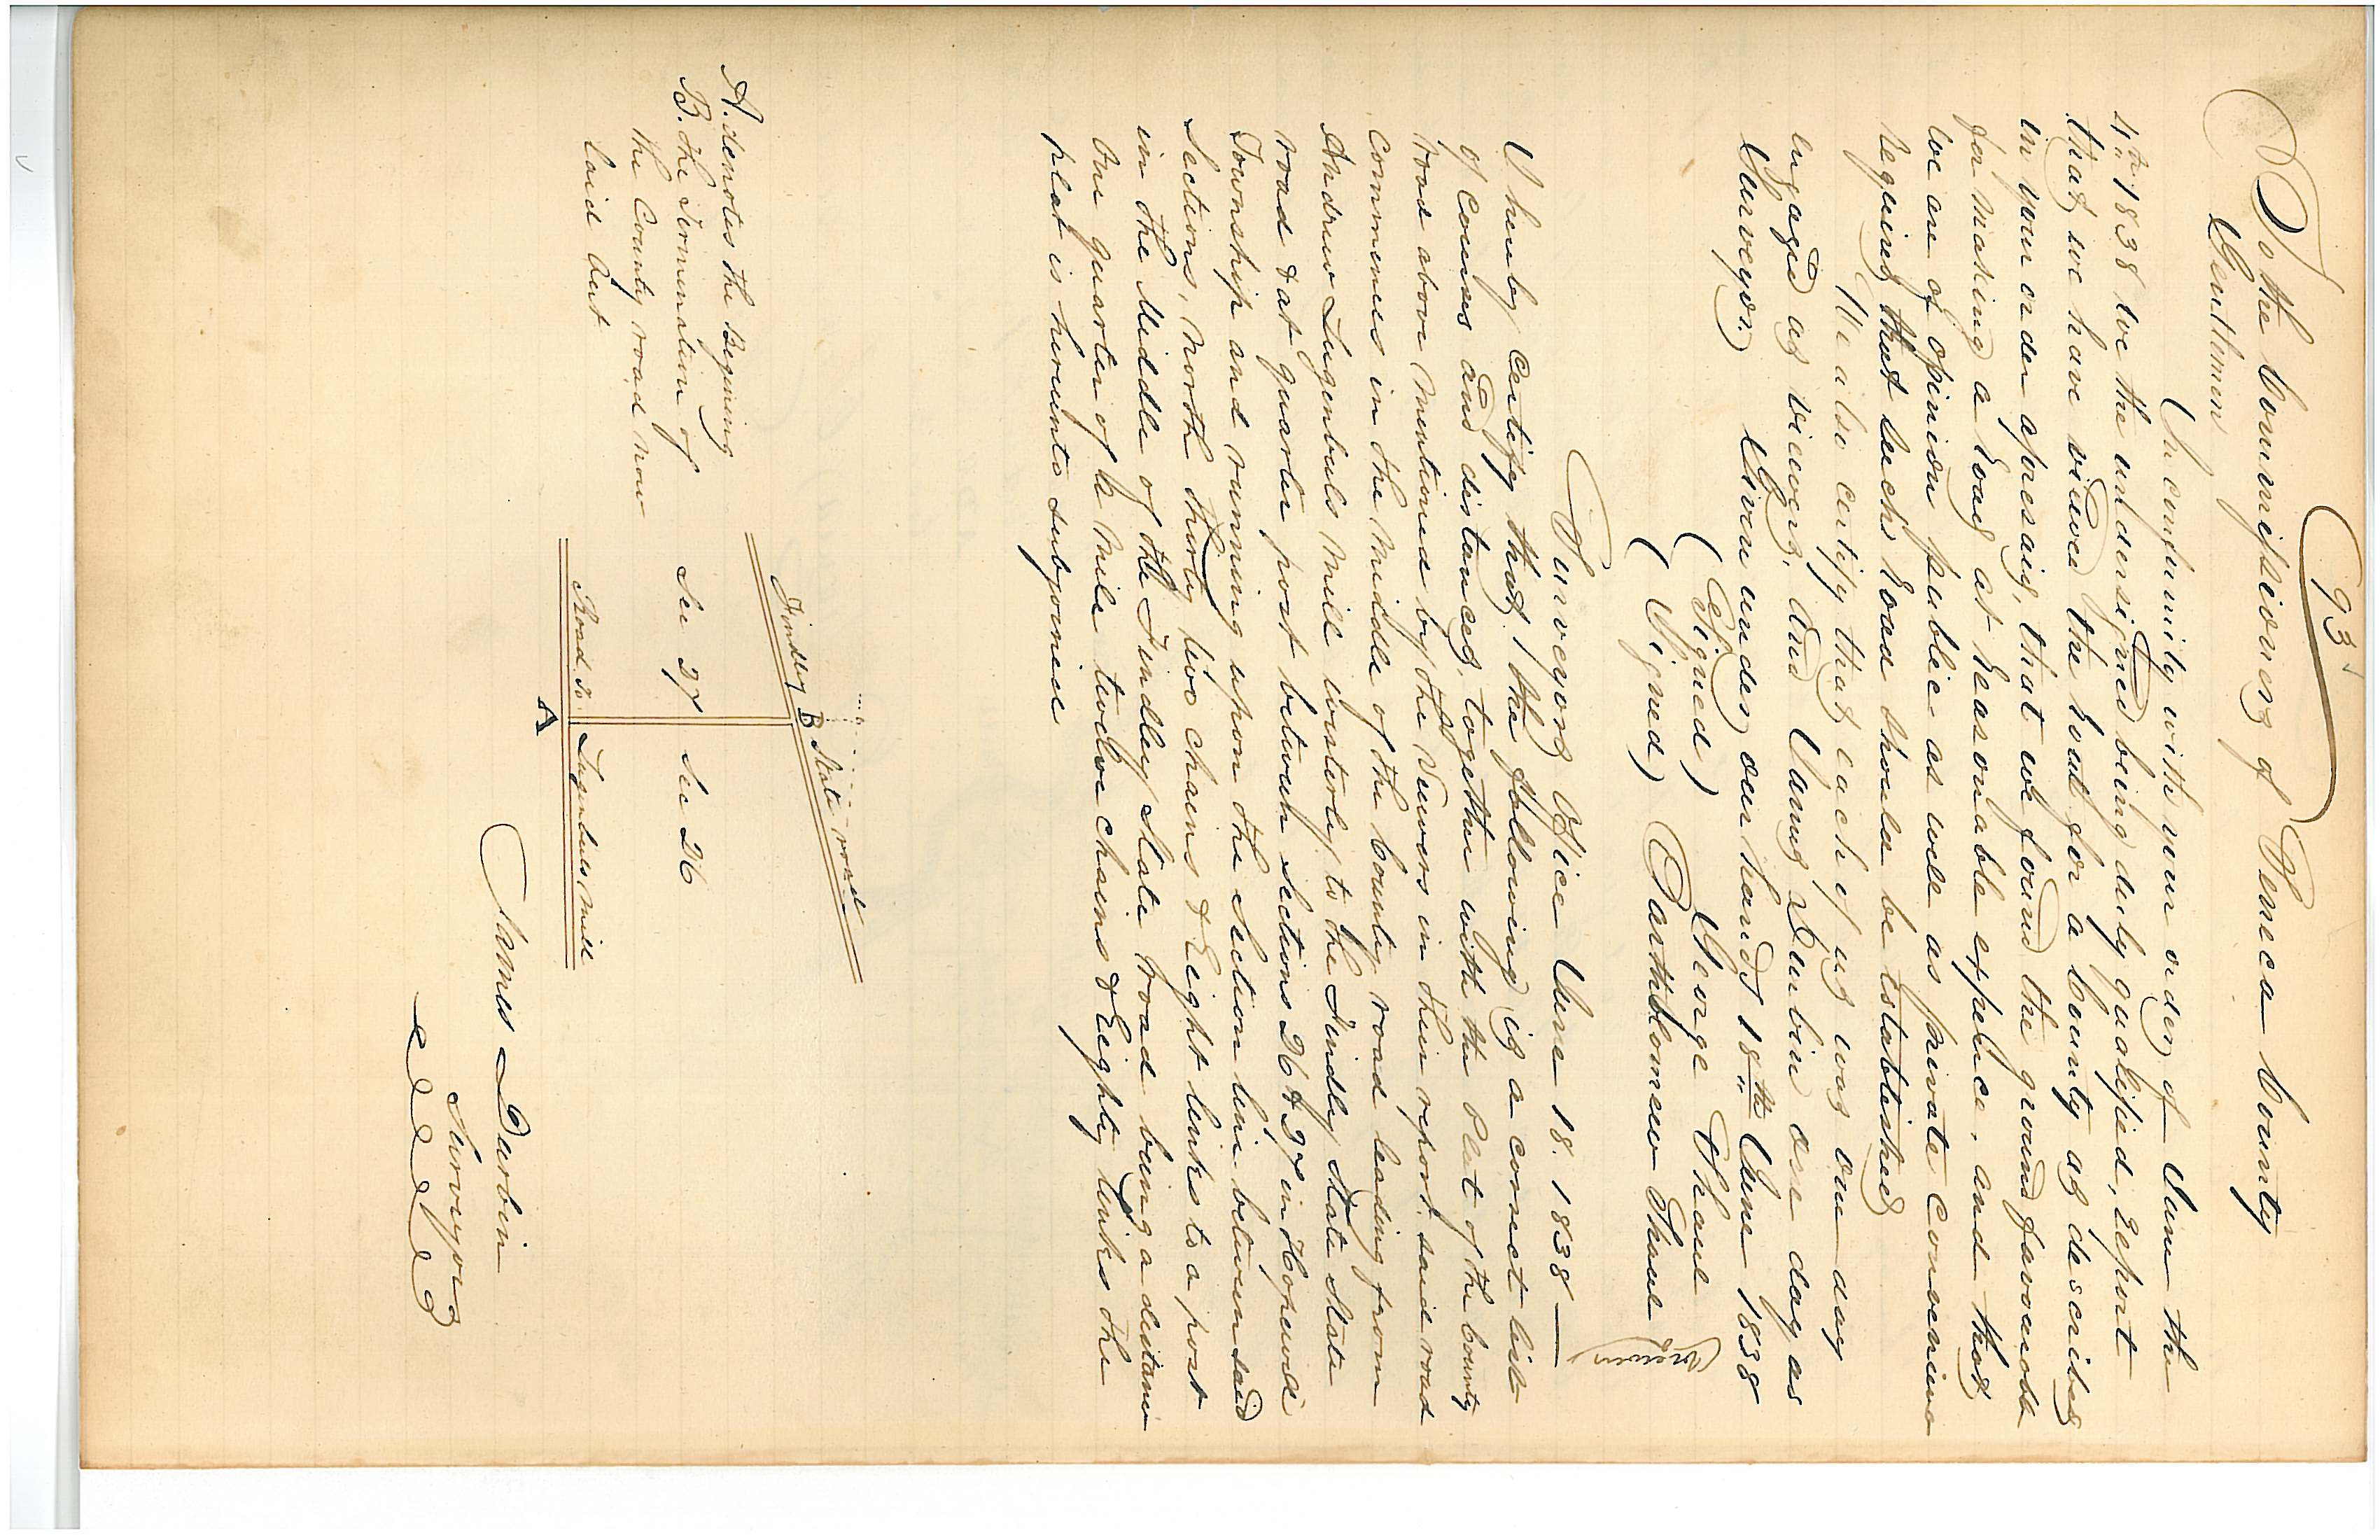 93
To the Commissioners of Seneca County
Gentlemen
In conformity with your order of June the
4th 1838 we the undersigned being duly qualified, Report
that we have viewed the Road for a County as described
in your order aforesaid, that we found the ground favourable
for making a Road at Reasonable expence, and that
we are of opinion public as well as private convenience
Requires that such Road should be established
We also certify that each of us was one day
engaged as viewers, and James Durbin one day as
Surveyor, Given under our hands 18th June 1838
(Signed) George Shaul
(Signed) Barthlomew Shaul
viewers
Surveyors Office June 18. 1838
I hereby certify that, the following is a correct list
of Courses and distances, together with the Plat of the County
road above mentioned by the Viewers in their report, said road
commences in the middle of the County road leading from
Andrew Lugenbuls mill westerly to the Findley State State
road & at quarter post between Sections 26 & 27 in Hopewell
Township and running upon the Section line between said
Sections, North thirty two chains & Eight links to a post
in the Middle of the Findley State road being a distance
One quarter of a Mile twelve chains & Eighty links the
plat is hereunto subjoined
A. denotes the Begining
B. the Termination of
the County road now
laid out
Findley B State road
Sec 27 Sec 26
Road to Lugenbuls Mill
A
James Durbin
Surveyor